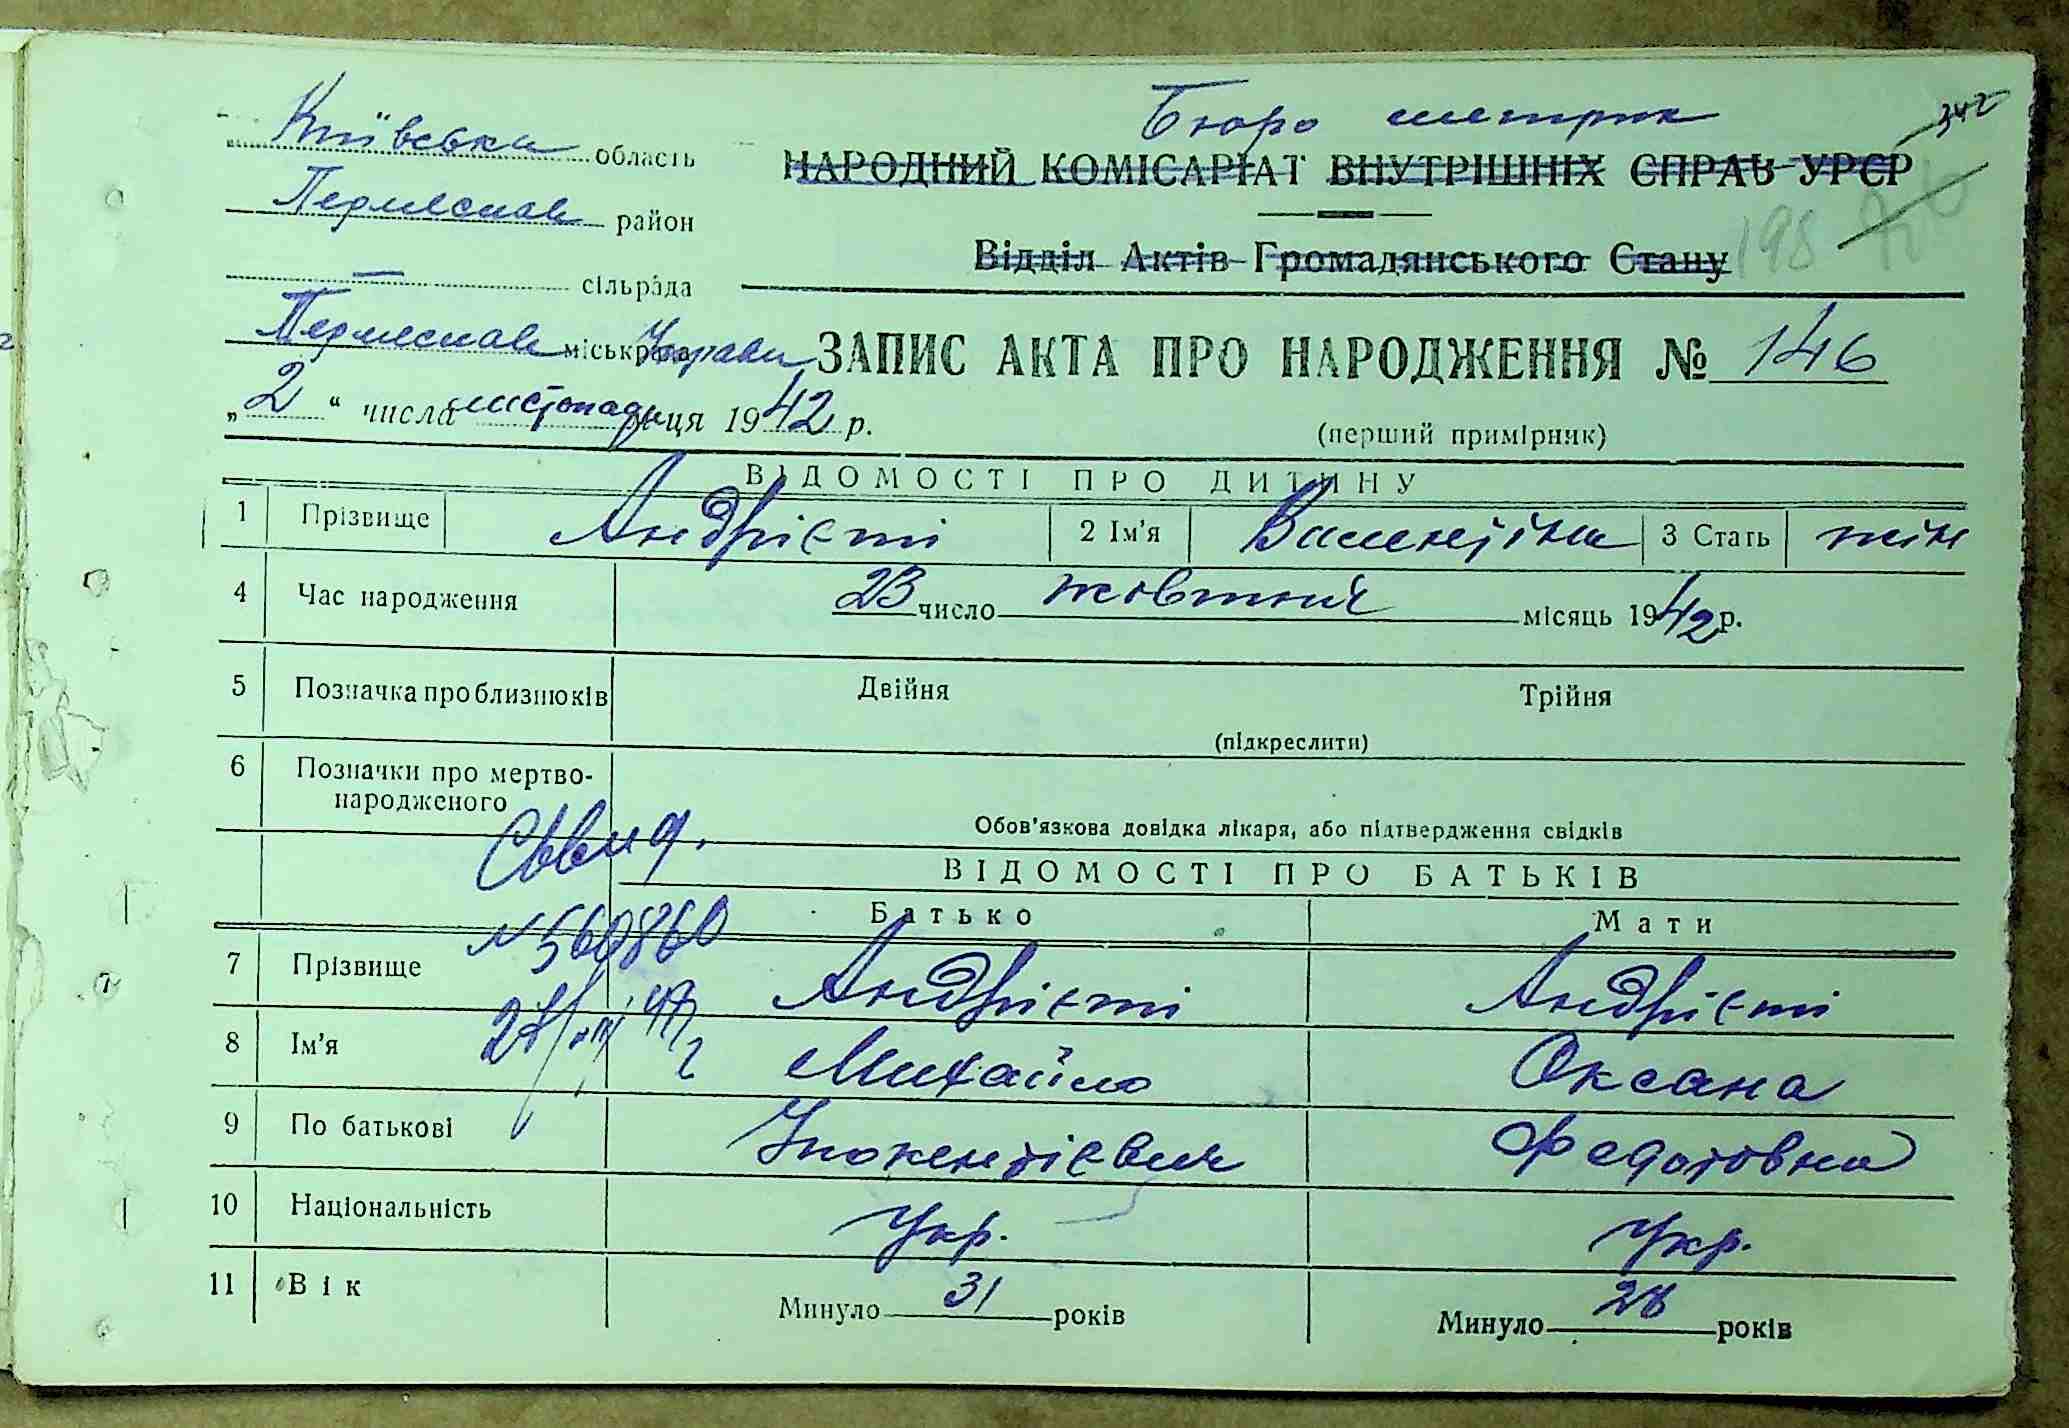 Київська область
Бюро метрик
342
НАРОДНИЙ КОМІСАРІАТ ВНУТРІШНІХ СПРАВ УРСР
район
198
Відділ Актів Громадянського Стану
— сільрада
міськрада Управи
ЗАПИС АКТА ПРО НАРОДЖЕННЯ № 146
„2“ числа листопада місяця 1942 р.
(перший примірник)
ВІДОМОСТІ ПРО ДИТИНУ
1 Прізвище Андрієті 2 Ім'я Валентіна 3 Стать жін
4 Час народження 23 число жовтня місяць 1942 р.
5 Позначка про близнюків Двійня Трійня
(підкреслити)
6 Позначки про мертво-
народженого
Обов'язкова довідка лікаря, або підтвердження свідків
ВІДОМОСТІ ПРО БАТЬКІВ
Батько Мати
№ 560860
7 Прізвище Андрієті Андрієті
8 Ім'я Михайло Оксана
9 По батькові Інокентієвич Федотовна
10 Національність Укр. Укр.
11 Вік Минуло 31 років Минуло 28 років